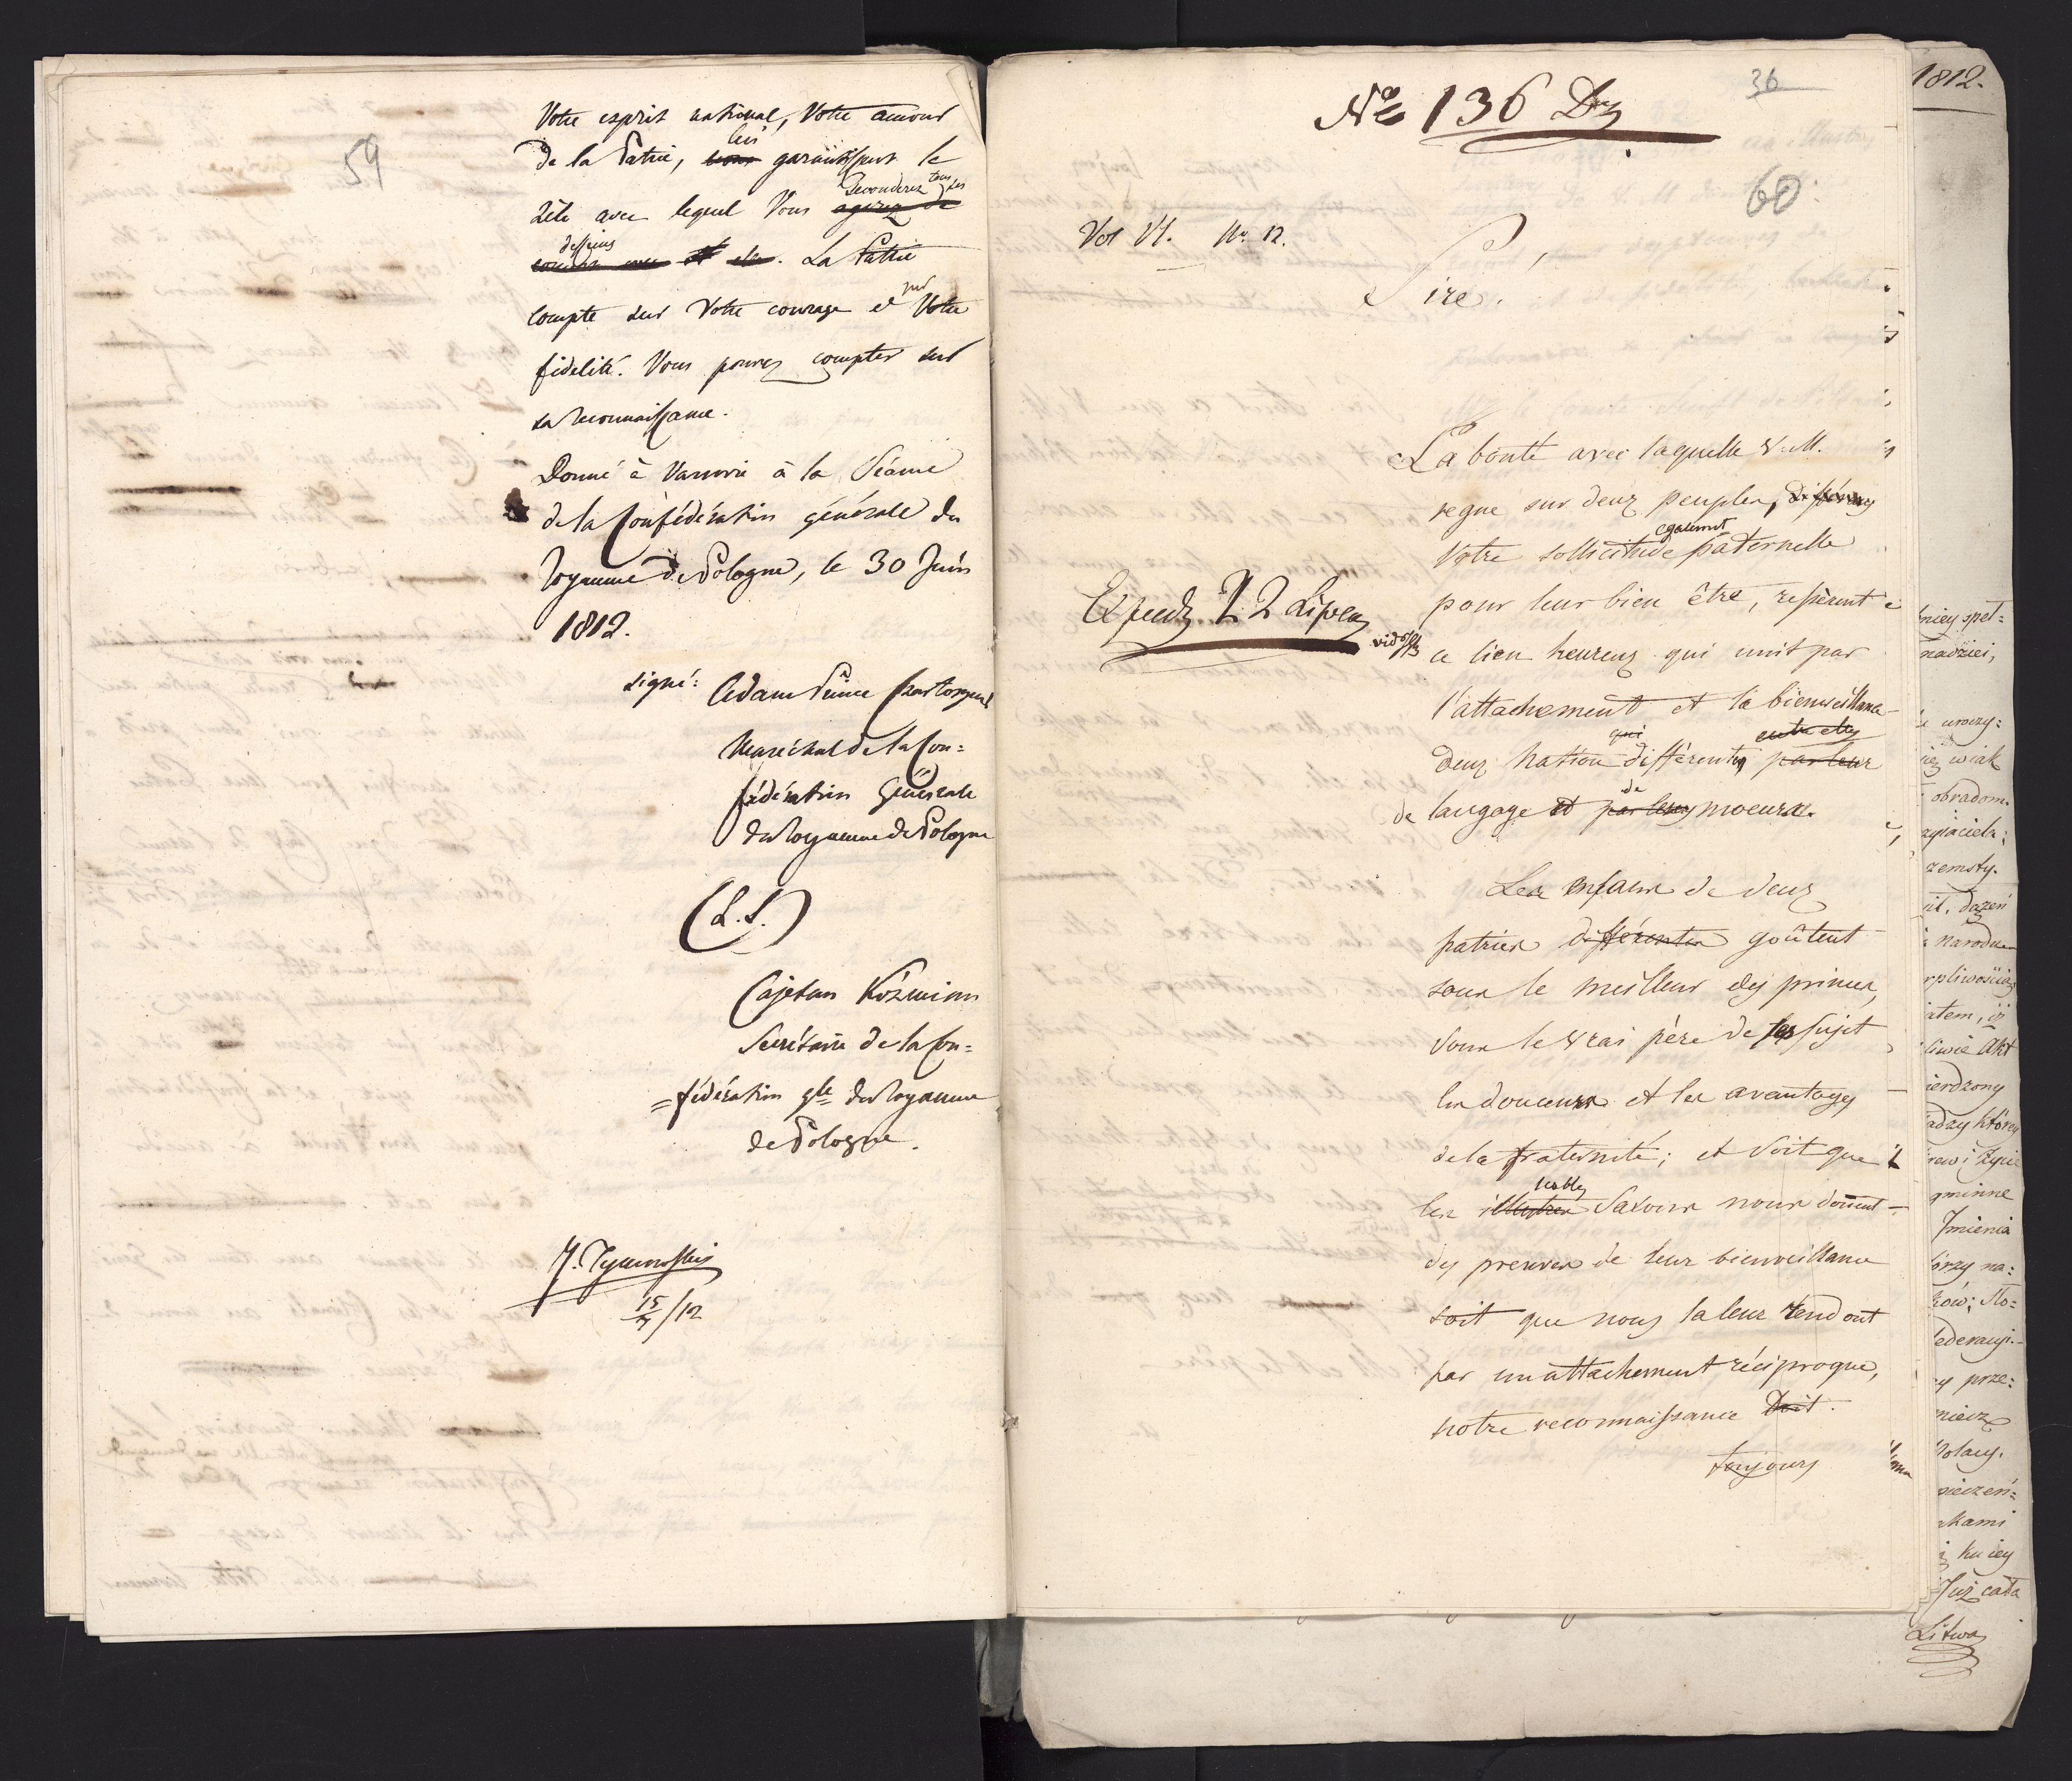 59
Votre esprit national, Votre amour
de la Patrie, lui garantissent le
zèle avec lequel Vous seconderez tous ses
desseins. La Patrie
compte sur Votre courage et sur Votre
fidelité. Vous pouvez compter sur
sa reconnaissance.
Donné à Varsovie à la Séance
de la Confédération générale du
Royaume de Pologne, le 30 Juin
1812.
signé: Adam Prince Czartoryski
Maréchal de la Con=
fédération Générale
du Royaume de Pologne
(L.S.)
Cajetan Koźmian
Secrétaire de la Con=
=fédération gle du Royaume
de Pologne.
15/7/12
No 136 Dz
36
60
Vol VI. Nr. 12.
Sire!
La bonté avec laquelle V. M.
regne sur deux peuples, différens
egalement
Votre sollicitude paternelle
pour leur bien être, resserent
Exped. 2 Lipca
ce lien heureux qui unit par
l'attachement et la bienveillance
qui entre elles
deux nation différentes par leur
de
de langage et par leurs moeurs.
Les enfans de deux
patries différentes goûtent
sous le meilleur des princes,
sous le vrai père de ses sujet
les douceurs et les avantages
de la fraternité; et soit que
nobles
les illustres Saxons nous donent
des preuves de leur bienveillance
soit que nous la leur rendont
par un attachement réciproque,
notre reconnaissance doit
toujours
1812.
niey speł=
nadziei,
obradom.
zemsty.
narodu
atem, iż
Akt
ierdzony
adzy którey
rew i życie
gminne
Jmienia
órzy na:
ków; Sto=
ederacyi.
ey prze:
Polacy.
kami
ku iey
Już cała
Litwa